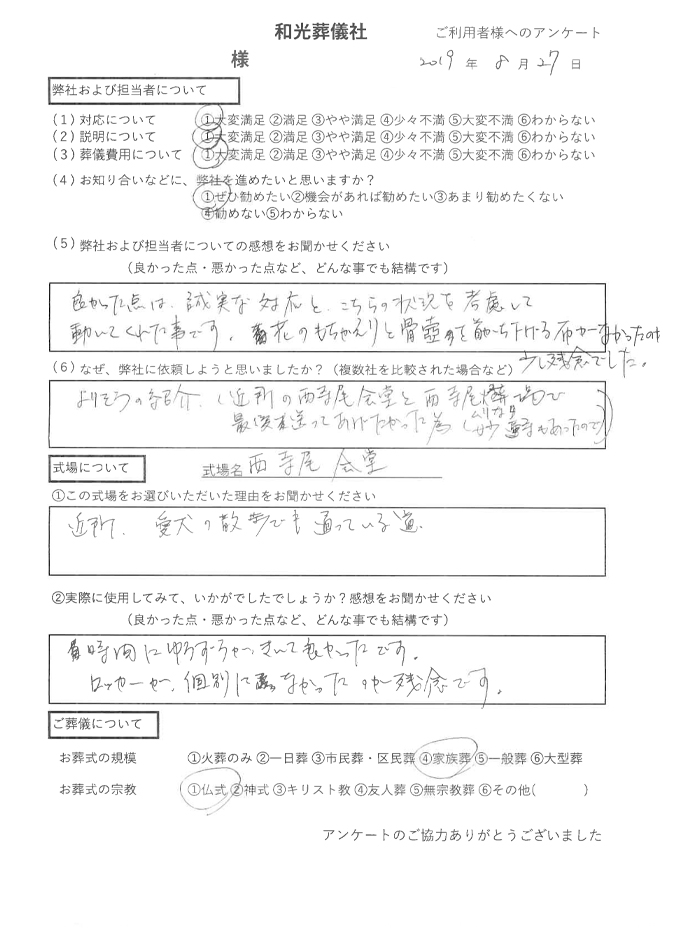 和光葬儀社
ご利用者様へのアンケート
様
2019 年 8 月 27 日
弊社および担当者について
(1) 対応について ①大変満足 ②満足 ③やや満足 ④少々不満 ⑤大変不満 ⑥わからない
(2) 説明について ①大変満足 ②満足 ③やや満足 ④少々不満 ⑤大変不満 ⑥わからない
(3) 葬儀費用について ①大変満足 ②満足 ③やや満足 ④少々不満 ⑤大変不満 ⑥わからない
(4) お知り合いなどに、弊社を進めたいと思いますか？
①ぜひ勧めたい②機会があれば勧めたい③あまり勧めたくない
④勧めない⑤わからない
(5) 弊社および担当者についての感想をお聞かせください
（良かった点・悪かった点など、どんな事でも結構です）
良かった点は、誠実な対応と、こちらの状況を考慮して
動いてくれた事です。花のもちかえりと骨壺を持ち下げる布がなかったのが
少し残念でした。
(6) なぜ、弊社に依頼しようと思いましたか？（複数社を比較された場合など）
よりそうの紹介、（近所の西寺尾会堂と西寺尾火葬場で
最後送ってあげたかった為
式場について
式場名 西寺尾会堂
①この式場をお選びいただいた理由をお聞かせください
近所、愛犬の散歩でも通っている道、
②実際に使用してみて、いかがでしたでしょうか？感想をお聞かせください
（良かった点・悪かった点など、どんな事でも結構です）
時間にゆうずうがきいて良かったです。
ロッカーが、個別になかったのが残念です。
ご葬儀について
お葬式の規模 ①火葬のみ ②一日葬 ③市民葬・区民葬 ④家族葬 ⑤一般葬 ⑥大型葬
お葬式の宗教 ①仏式 ②神式 ③キリスト教 ④友人葬 ⑤無宗教葬 ⑥その他( )
アンケートのご協力ありがとうございました